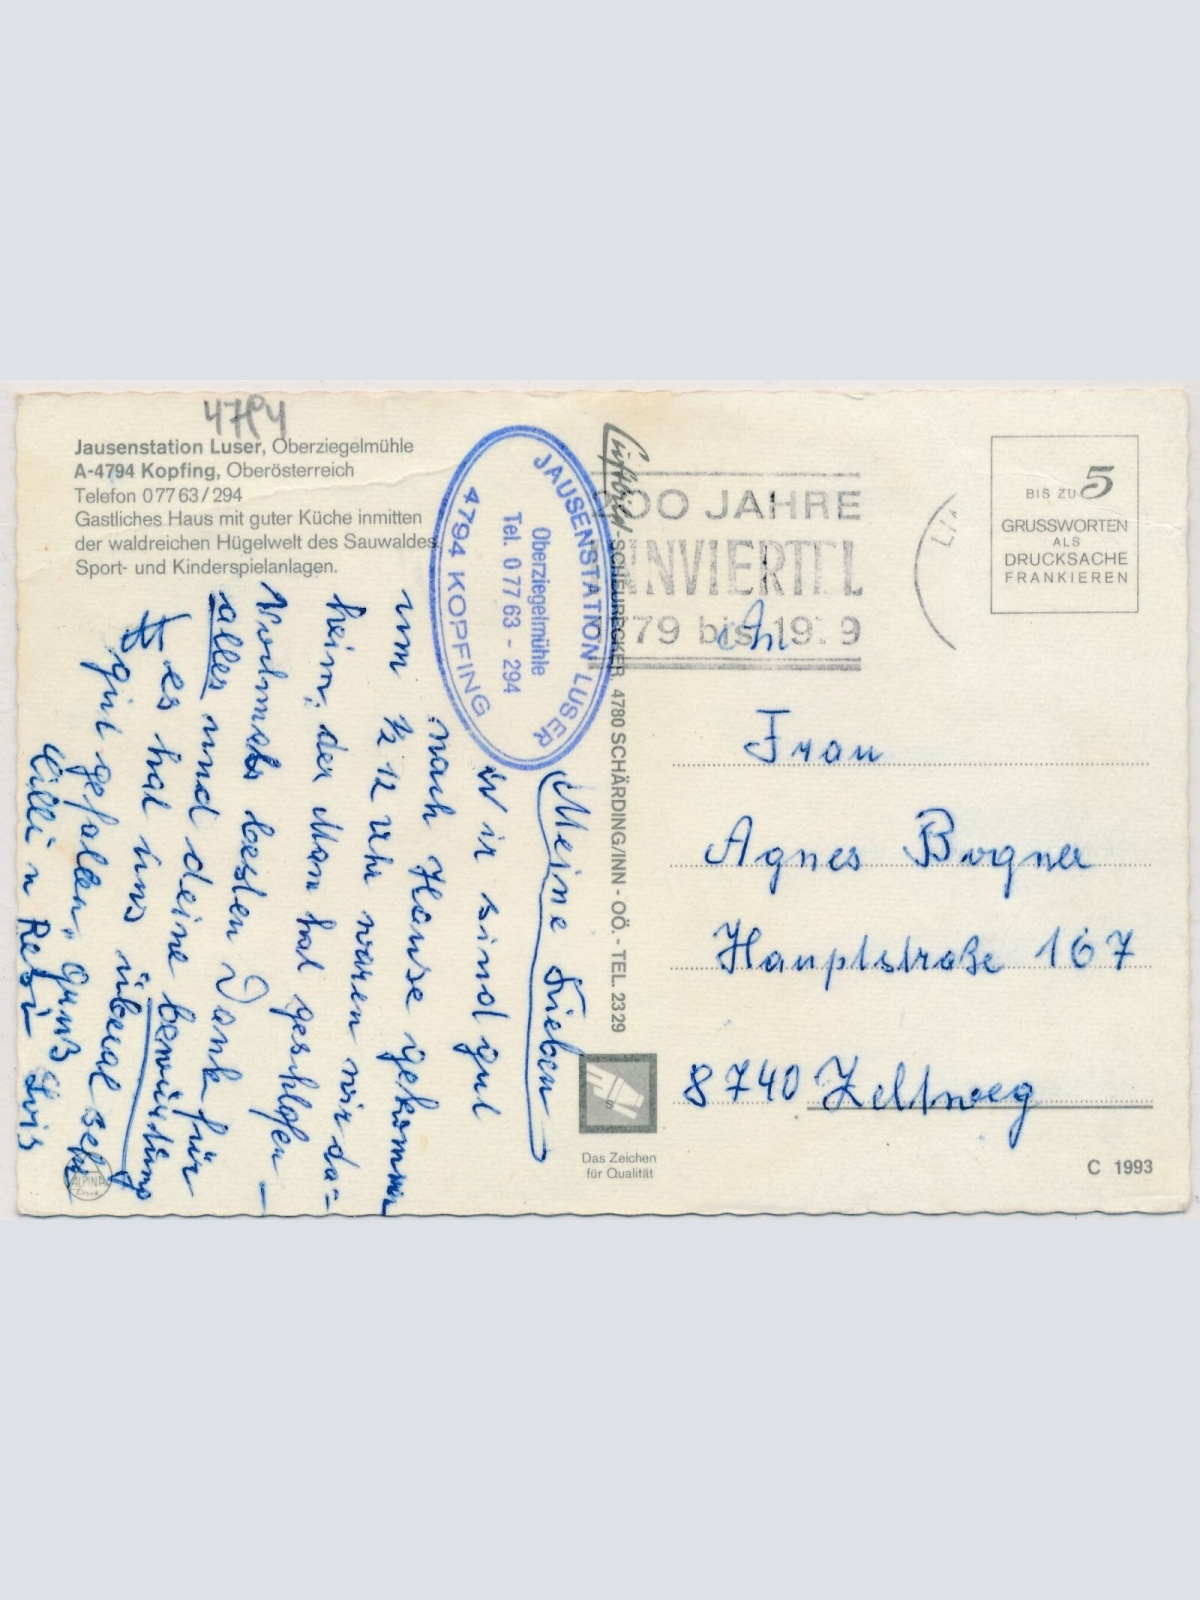 4794
Jausenstation Luser, Oberziegelmühle
A-4794 Kopfing, Oberösterreich
Telefon 0 77 63 / 294
Gastliches Haus mit guter Küche inmitten
der waldreichen Hügelwelt des Sauwaldes
Sport- und Kinderspielanlagen.
JAUSENSTATION LUSER
Oberziegelmühle
Tel. 0 77 63 - 294
4794 KOPFING
Meine Lieben
Wir sind gut
nach Hause gekommen
um ½ 12 Uhr waren wir da=
heim, der Mann hat geschlafen —
Nochmals besten Dank für
alles und deine bewirtung
es hat uns überal sehr
gut gefallen. Gruß
Cilli u Resi Lois
ALPINA
Druck
Luftbild-SCHEURECKER 4780 SCHÄRDING/INN - OÖ. - TEL. 23 29
Das Zeichen
für Qualität
200 JAHRE
INNVIERTEL
1779 bis 1979
BIS ZU 5
GRUSSWORTEN
ALS
DRUCKSACHE
FRANKIEREN
An
Frau
Agnes Bogner
Hauptstraße 167
8740 Zeltweg
C 1993